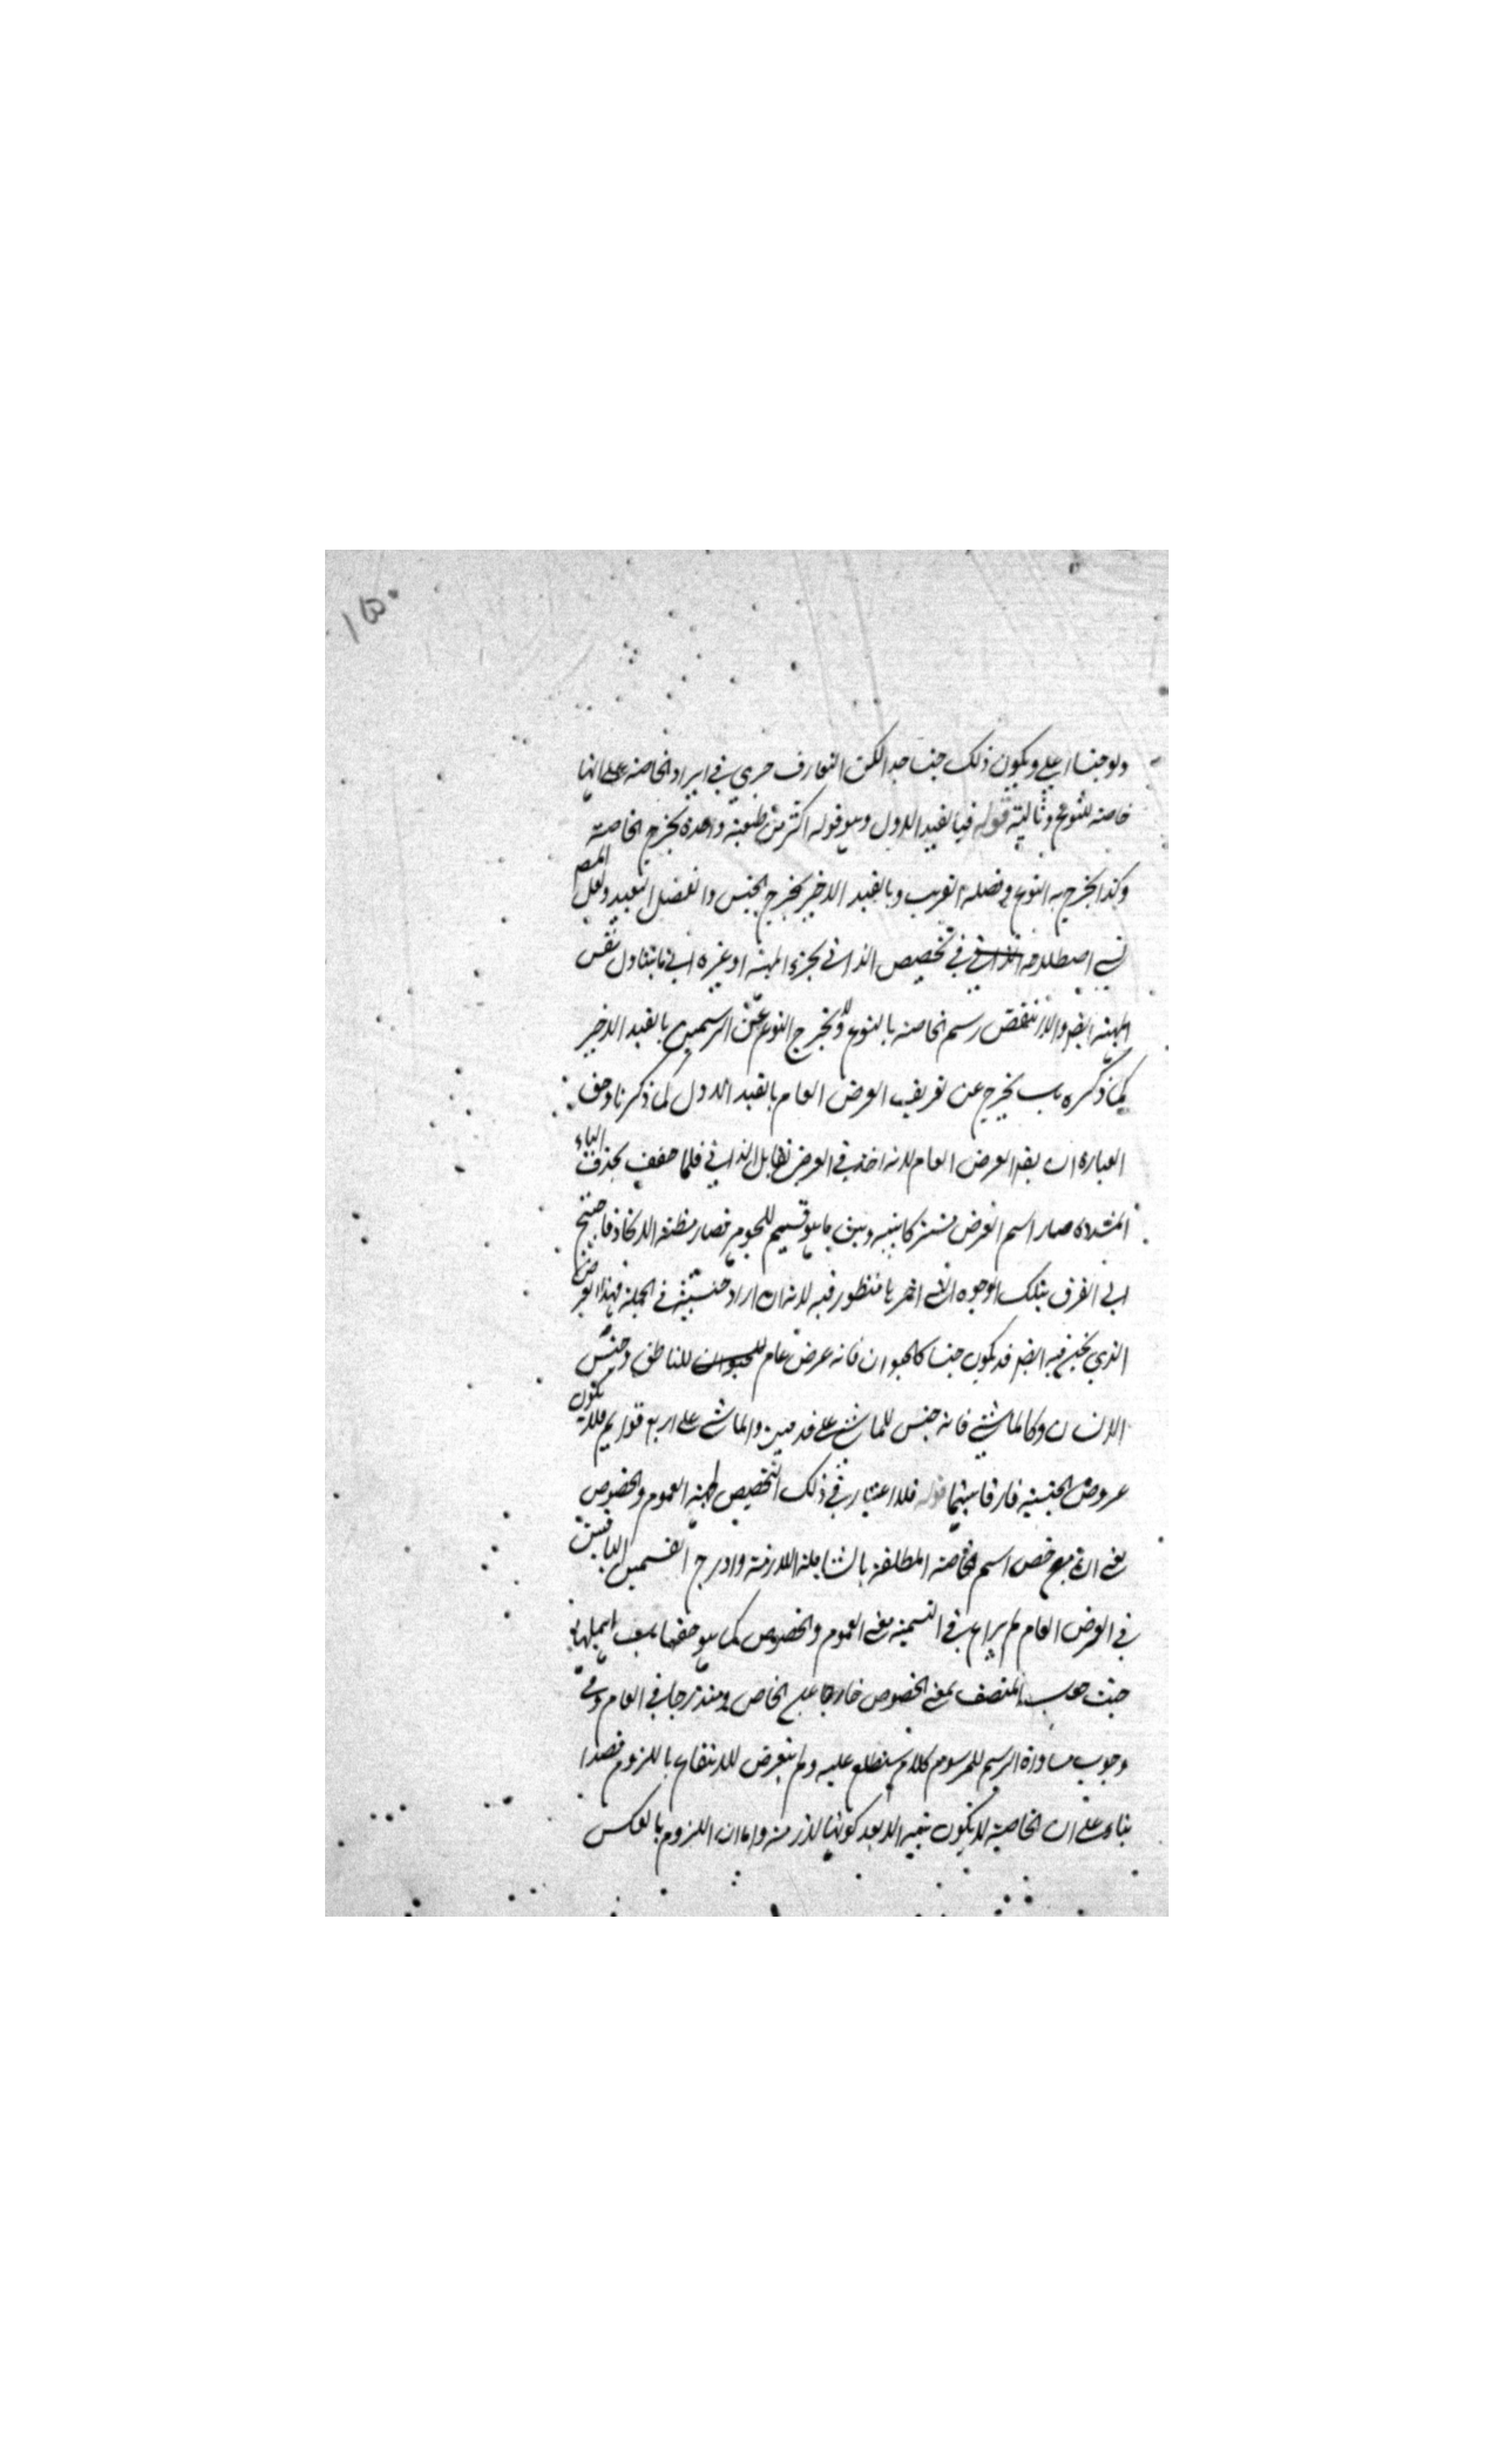 ١٥٠
ولو جنسا اعلى ويكون ذلك حسنا جدا لكن التعارف جرى فى ايراد الخاصة على انها
خاصة للنوع وثاليته قوله فبالقيد الاول وهو قوله اكثر من طبيعة واحدة يخرج الخاصة
وكذا يخرج به النوع وفصله القريب وبالقيد الاخير يخرج الجنس والفصل البعيد ولعل المصـ
اصطلاحه فى تخصيص الذاتى بجزء المهية او غيره اى ما يتناول نفس
المهية ايضا والا لانتقض رسم الخاصة بالنوع ولا يخرج النوع عن الرسمين بالقيد الاخير
كما ذكره بل يخرج عن تعريف العرض العام بالقيد الاول لما ذكرنا وحق
العبارة ان يقم العرض العام لانه اخذ فى العرض مقابل الذاتى فلما خفف بحذف الياء
المشددة صار اسم العرض مشتركا بينه وبين ما هو قسيم للجوهر فصار مظنة الاتحاد فاحتيج
الى الفرق بتلك الوجوه التى اخر ها منظور فيه لانه ان اراد جنسيته فى الجملة فهذا العرض
الذى نحن فيه ايضا قد يكون جنسا كالحيوان فانه عرض عام للناطق وجنس
الانسان وكالماشى فانه جنس للماشى على قدمين والماشى على اربع قوايم فلا يكون
عروض الجنسية فارقا بينهما قوله فلا اعتبار فى ذلك التخصيص لجهة العموم والخصوص
يعنى انه مع خص اسم الخاصة المطلقة بالشاملة اللازمة وادرج القسمين الباقيين
فى العرض العام لم يراع فى التسمية معنى العموم والخصوص كما هو حقها بل اهملها
حيث جعل المتصف بمعنى الخصوص خارجا عن الخاص ومندرجا فى العام وفى
وجوب مساواة الرسم للمرسوم كلام ستطلع عليه ولم يتعرض للانتفاء باللزوم قصدا
بناء على ان الخاصية لا يكون بينه الا بعد كونها لازمة واما ان اللزوم بالعكس